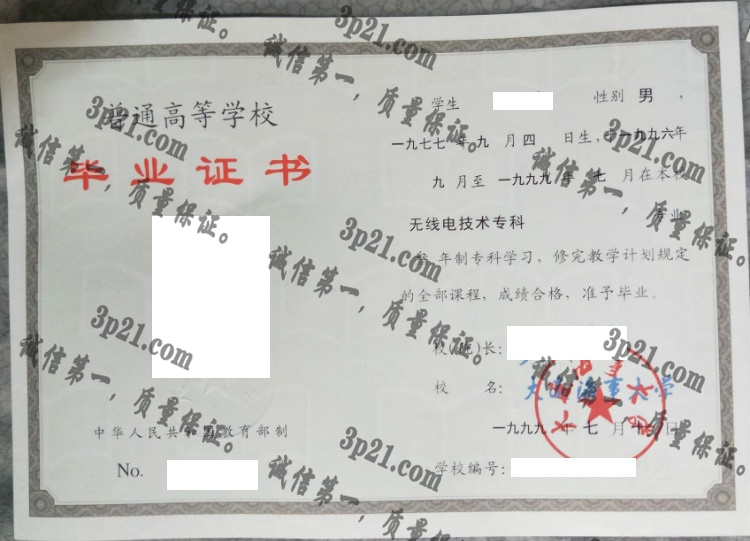 普通高等学校
毕业证书
中华人民共和国教育部制
No.
学生 性别 男，
一九七七 年 九 月 四 日生，于一九九六年
九 月至 一九九九 年 七 月在本校
无线电技术专科 专业
叁 年制专科学习，修完教学计划规定
的全部课程，成绩合格，准予毕业。
校(院)长：
校 名：
大连海事大学
一九九九 年 七 月 十 日
学校编号：
3p21.com
诚信第一，质量保证。
3p21.com
诚信第一，质量保证。
3p21.com
诚信第一，质量保证。
3p21.com
诚信第一，质量保证。
3p21.com
诚信第一，质量保证。
3p21.com
诚信第一，质量保证。
3p21.com
诚信第一，质量保证。
3p21.com
诚信第一，质量保证。